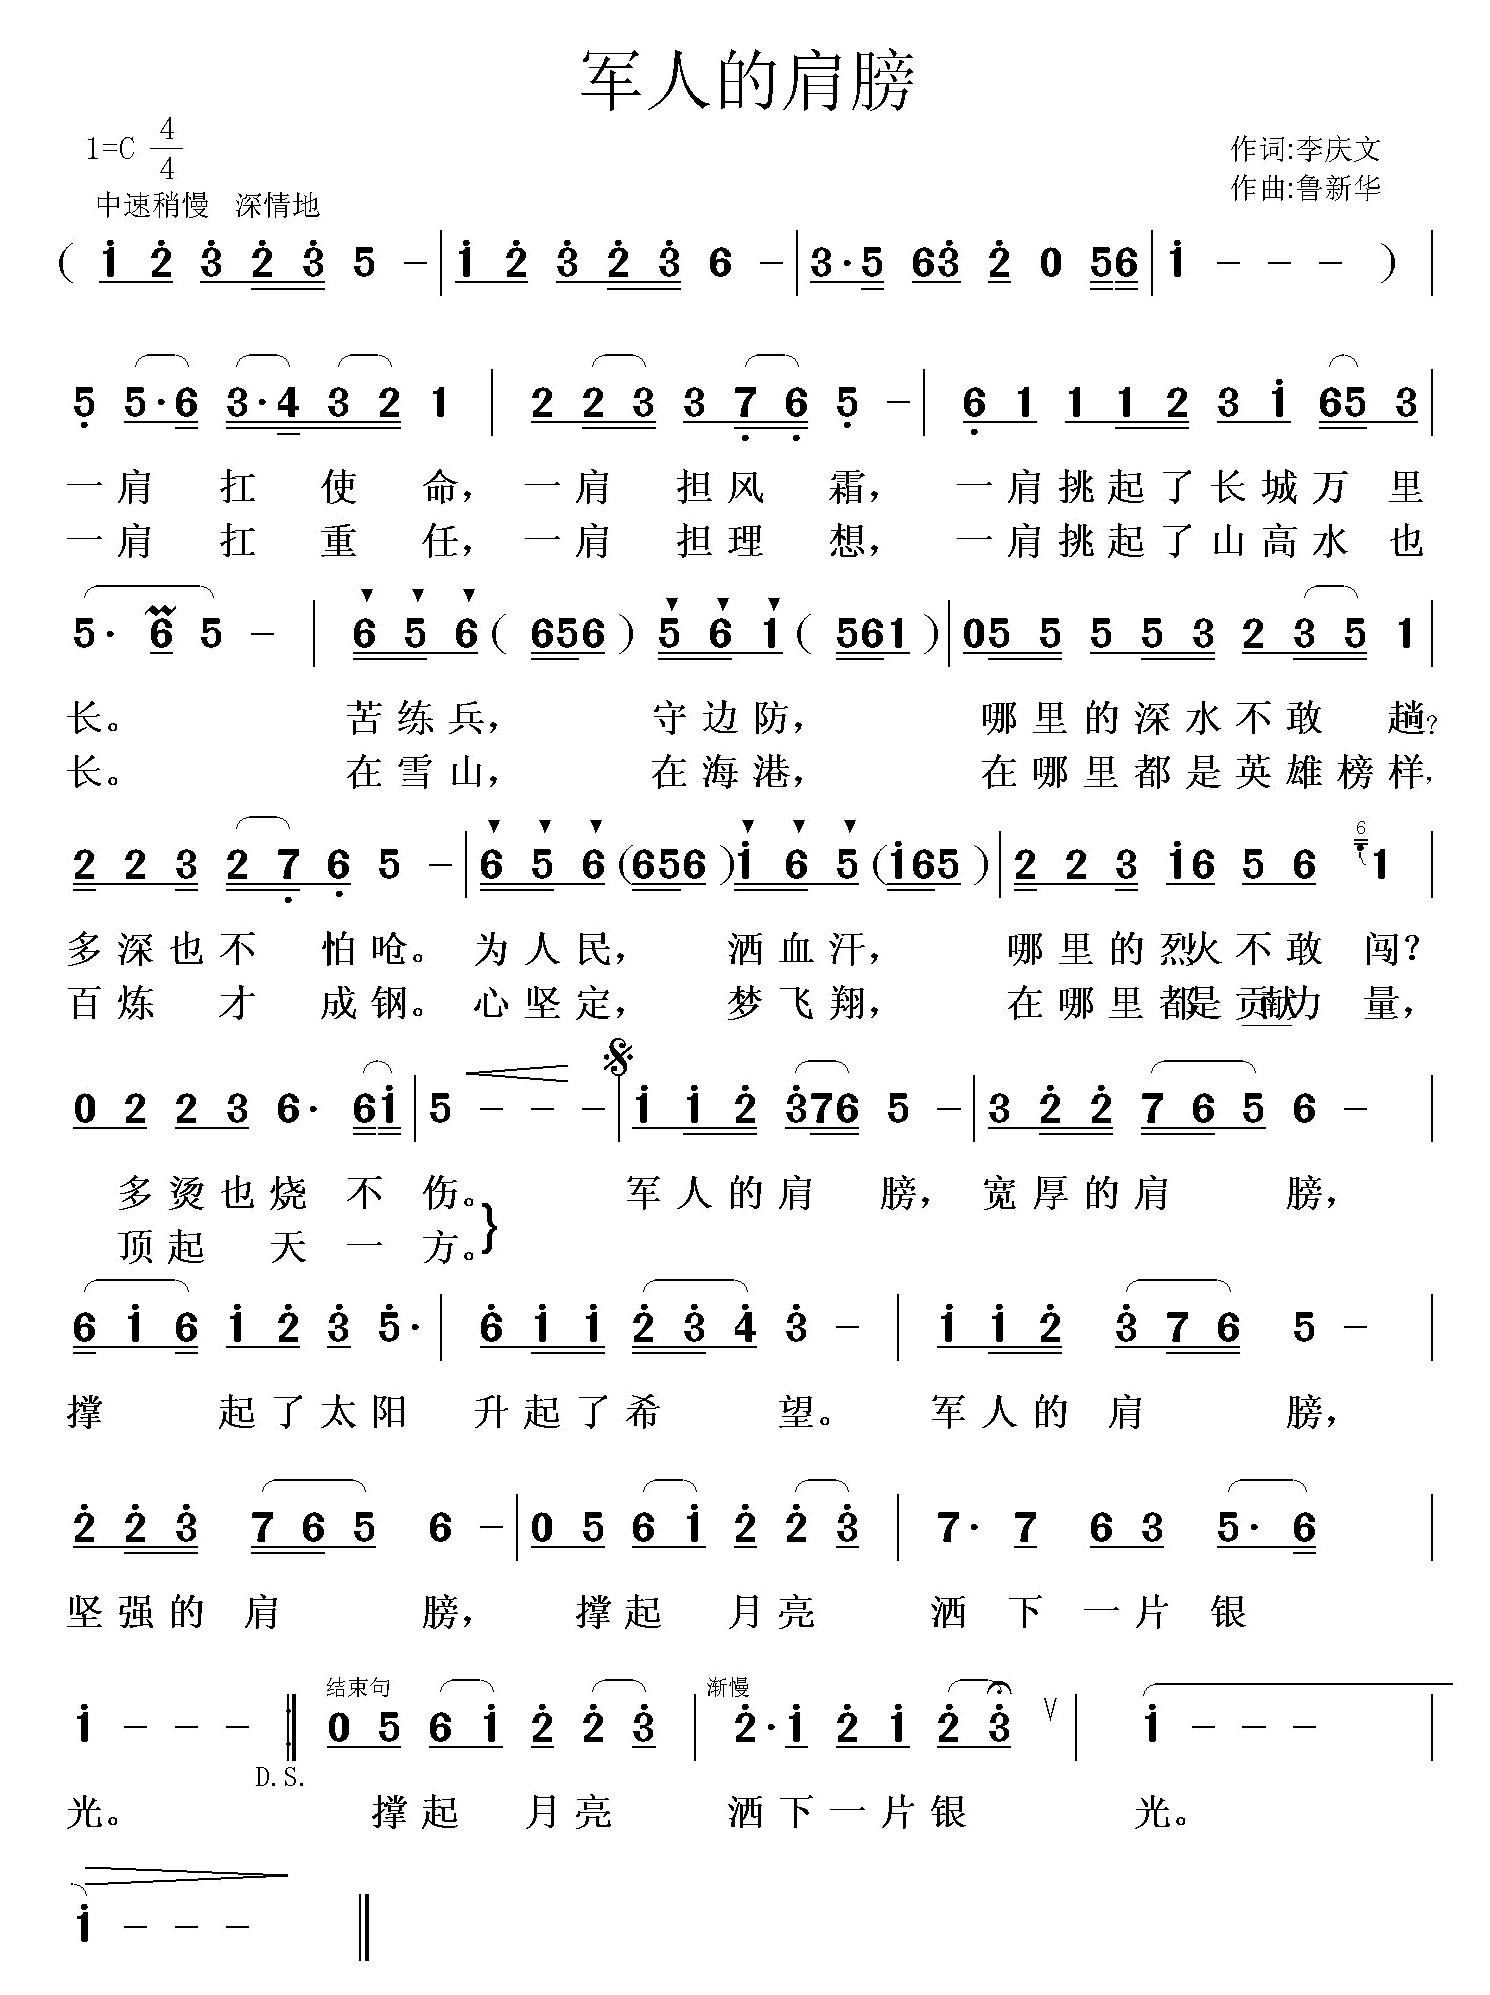 军人的肩膀
1=C 4/4
作词:李庆文
中速稍慢 深情地
作曲:鲁新华
( i 2 3 2 3 5 - | i 2 3 2 3 6 - | 3·5 63 2 0 56 | i - - - ) |
5 5·6 3·4 3 2 1 | 2 2 3 3 7 6 5 - | 6 1 1 1 2 3 i 65 3 |
一肩 扛 使 命, 一肩 担风 霜, 一肩挑起了长城万里
一肩 扛 重 任, 一肩 担理 想, 一肩挑起了山高水也
5· 6 5 - | 6 5 6 ( 656 ) 5 6 1 ( 561 ) | 05 5 5 5 3 2 3 5 1 |
长。 苦练兵, 守边防, 哪里的深水不敢 趟?
长。 在雪山, 在海港, 在哪里都是英雄榜样,
6
2 2 3 2 7 6 5 - | 6 5 6 (656) i 6 5 (i65) | 2 2 3 i6 5 6 1 |
多深也不 怕呛。 为人民, 洒血汗, 哪里的烈火不敢 闯?
百炼 才 成钢。 心坚定, 梦飞翔, 在哪里都是贡献力 量,
0 2 2 3 6· 6i | 5 - - - | i i 2 376 5 - | 3 2 2 7 6 5 6 - |
多烫也烧 不 伤。 军人的肩 膀, 宽厚的肩 膀,
顶起 天 一 方。 }
6 i 6 i 2 3 5· | 6 i i 2 3 4 3 - | i i 2 3 7 6 5 - |
撑 起了太阳 升起了希 望。 军人的 肩 膀,
2 2 3 7 6 5 6 - | 0 5 6 i 2 2 3 | 7· 7 6 3 5· 6 |
坚强的 肩 膀, 撑起 月亮 洒 下 一片 银
结束句 渐慢
i - - - :‖ 0 5 6 i 2 2 3 | 2·i 2 i 2 3 V | i - - - |
D.S.
光。 撑起 月亮 洒下一片银 光。
i - - - ‖